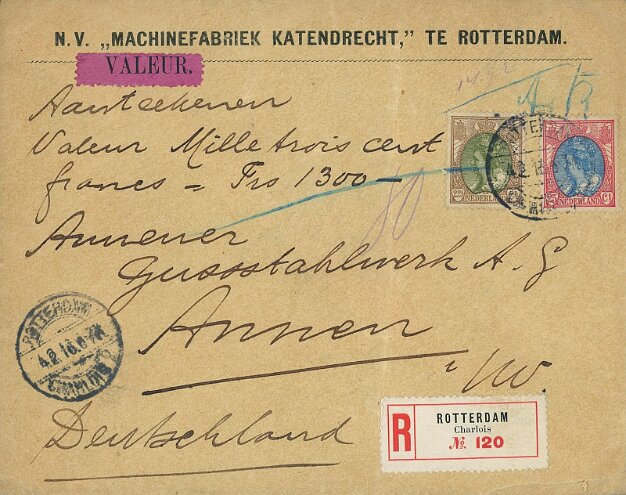 N.V. „MACHINEFABRIEK KATENDRECHT,” TE ROTTERDAM.
VALEUR.
Aanteekenen
Valeur Mille trois cent
francs = Frs 1300 —
80
Annener
Gussstahlwerk A. G
Annen
i/W.
Deutschland
NEDERLAND
NEDERLAND
ROTTERDAM
4.2.10.
CHARLOIS
R
ROTTERDAM
Charlois
No. 120